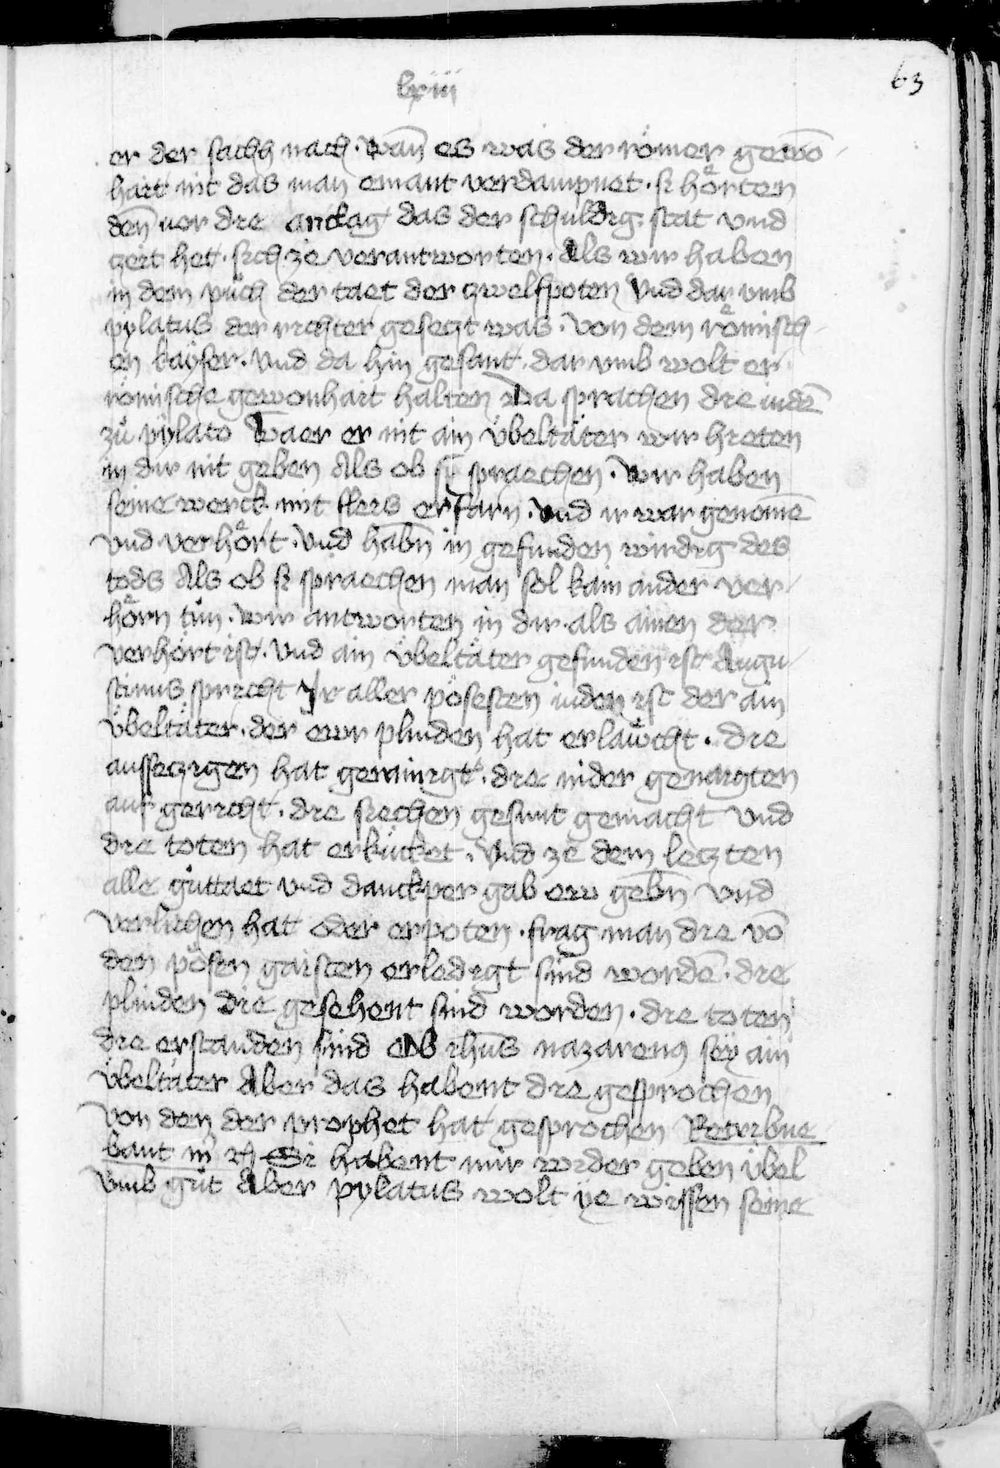 lxiii
63
er der sachh nach · wan̄ es was der römer gewō
hait nit das man emant verdampnet · si hörten
den̄ uor die anclag das der schuldig stat vnd
zeit het · sich ze verantworten · Als wir haben
in dem püch der taet der zwelfpoten Vnd dar vmb
pylatus der richter gesetzt was · Von dem römisch
en kayser · Vnd da hin gesant · dar vmb wolt er
römische gewonhait halten Da sprachen die iudē
zů pylato Waer er nit ain übeltäter wir hieten
in dir nit geben Als ob si spraechen · Wir haben
seine werck mit fleis erfarn · Vnd ir war genomē
Vnd verhört · Vnd habn̄ in gefunden wirdig des
tods Als ob si spraechen man sol kain ander ver
hörn tůn · Wir antworten in dir als ainen der
verhört ist · Vnd ain übeltäter gefunden ist Augu
stinus spricht Ir aller pösesten iuden ist der ain
übeltäter · der ewr plinden hat erlawcht · die
aussetzigen hat gerainigt · die nider genaigten
auf gericht · die siechen gesunt gemacht Vnd
die toten hat erkücket · Vnd ze dem letzten
alle güttaet vnd danckper gab ew gebn̄ Vnd
verlichen hat oder erpoten · frag man die vō
den pösen gaisten erledigt sind wordē · die
plinden die gesehent sind worden · die toten
die erstanden sind Ob ihūs nazarenus sey ain
übeltäter Aber das habent die gesprochen
Von den der prophet hat gesprochen Retribue
bant m rc Si habent mir wider geben übel
Vmb gůt Aber pylatus wolt ye wissen seine